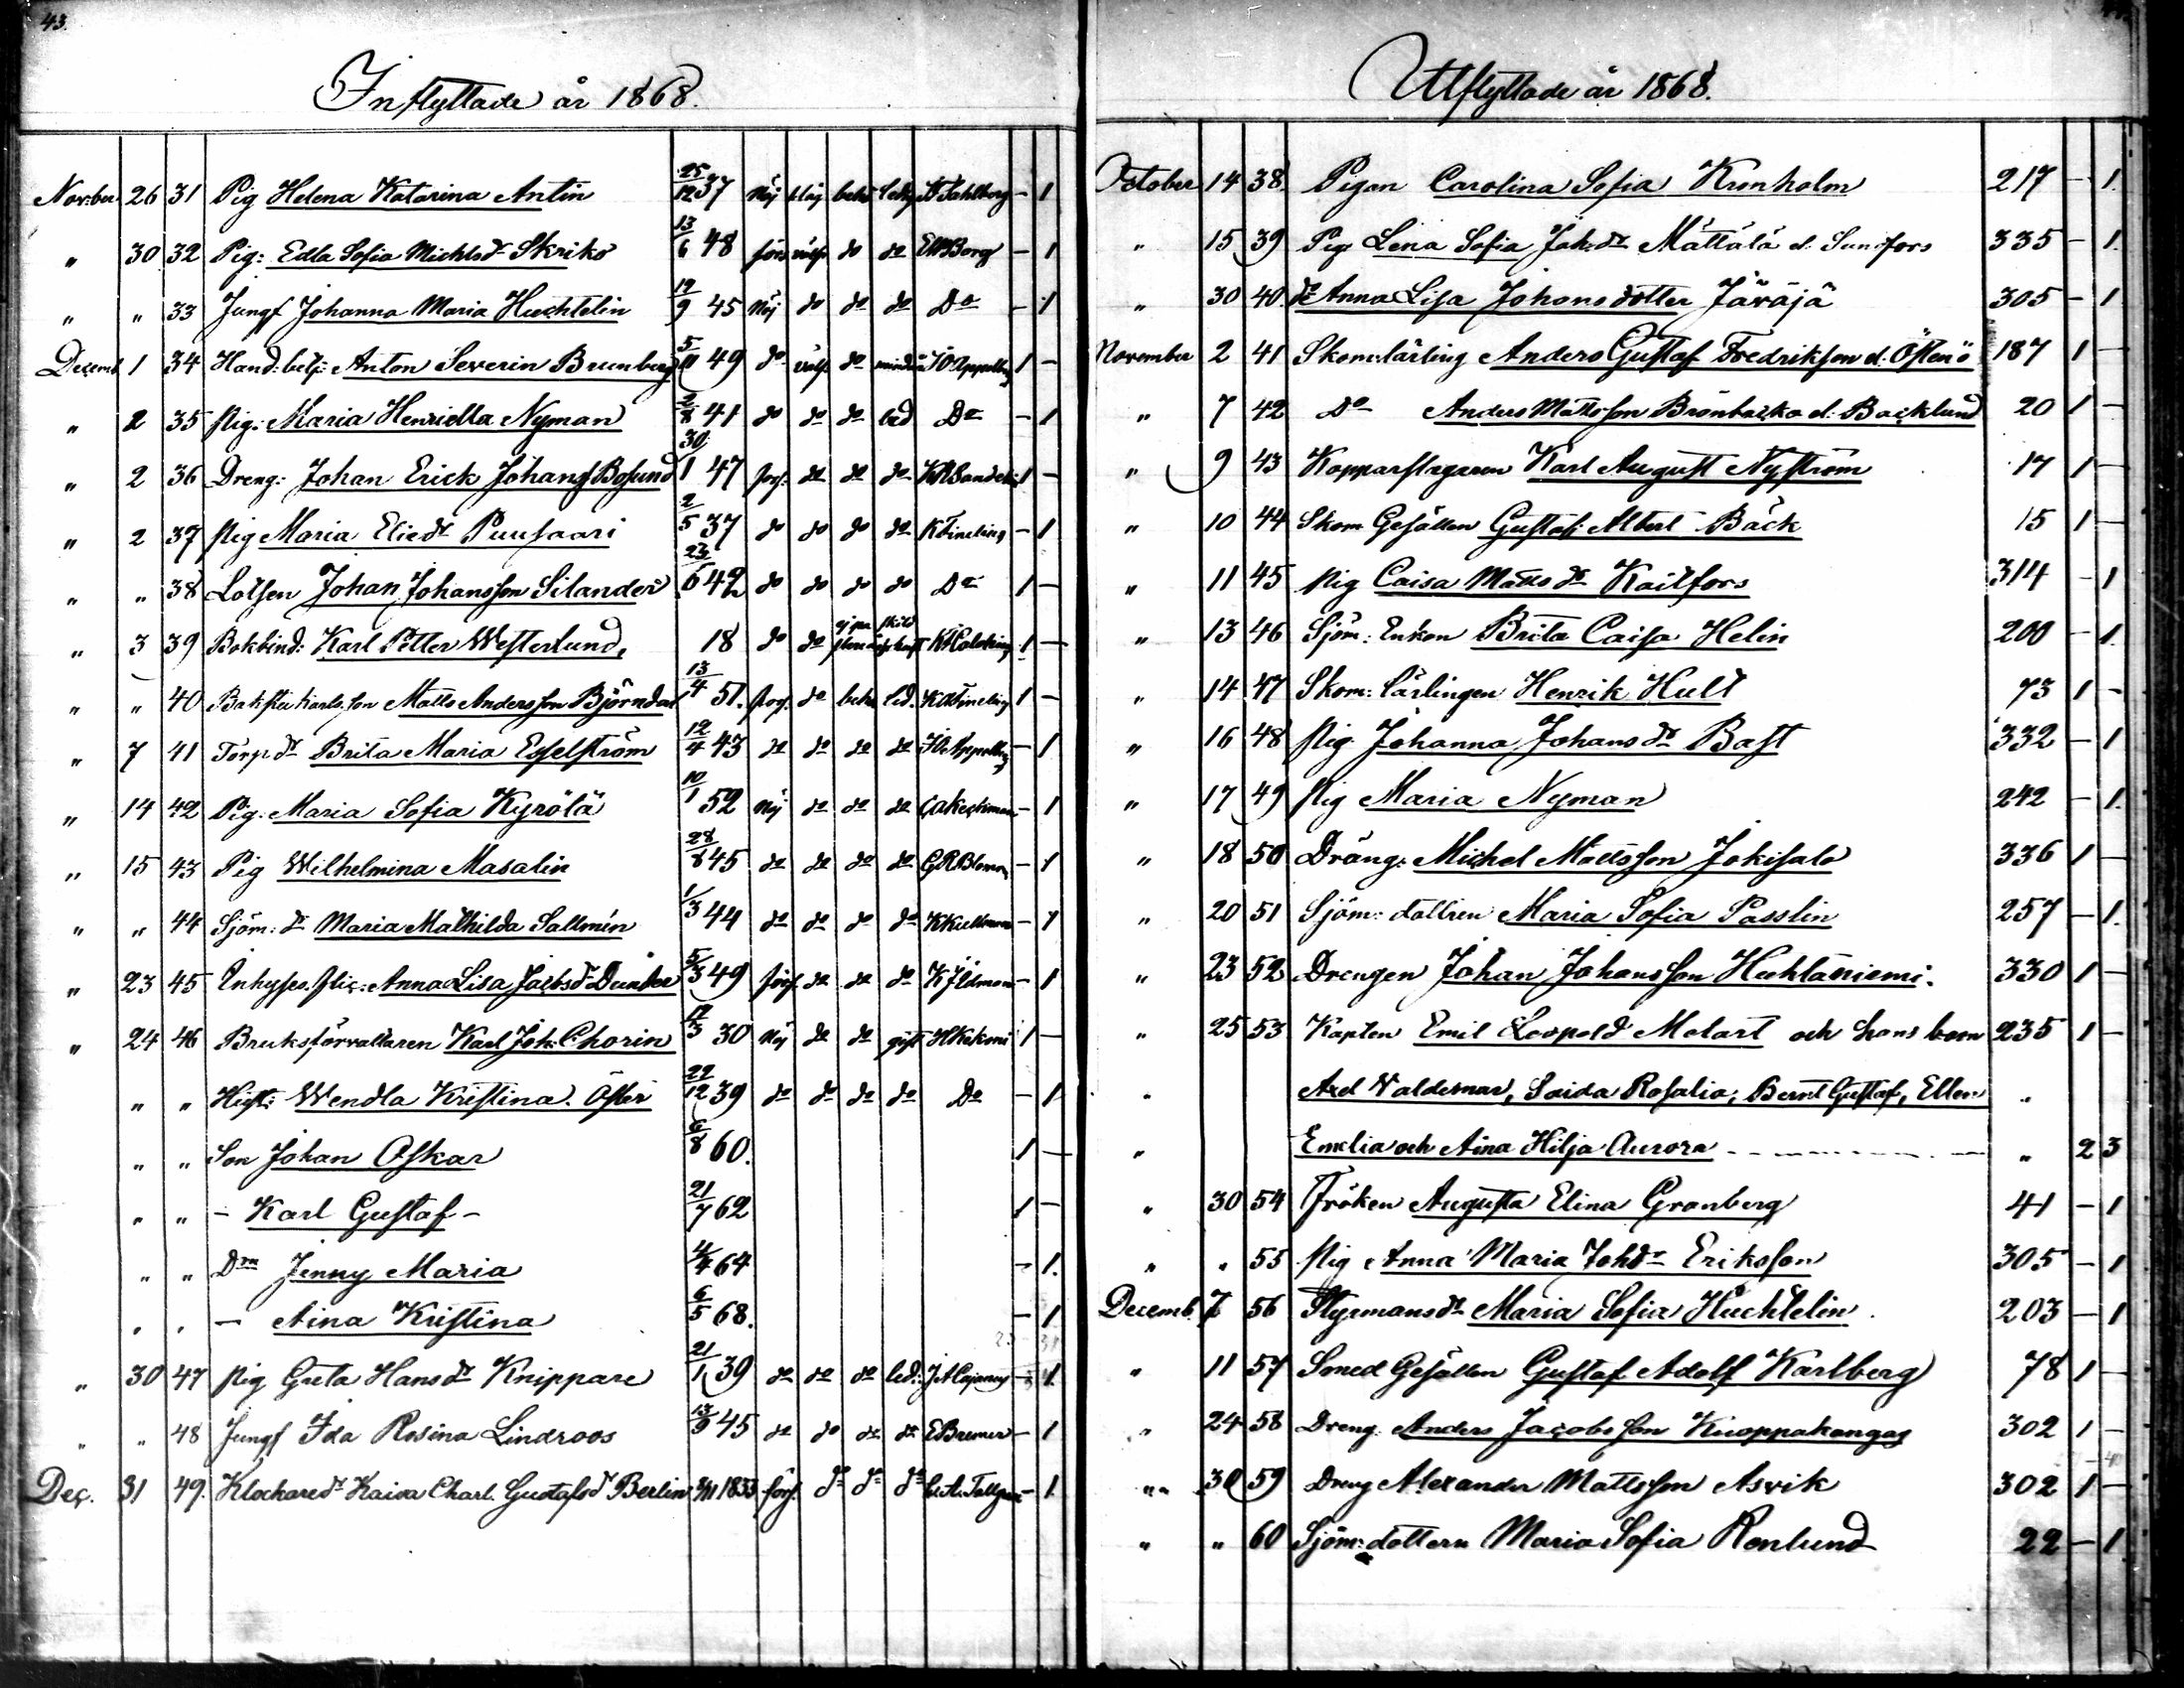 43.
Inflyttade år 1868.
Nov:ber 26 31 Pig Helena Katarina Antin 25/12 37 Nöj behö ledig Tahlberg - 1
" 30 32 Pig: Edla Sofia Michlsdr Skriko 13/6 48 förs do do Borg - 1
" " 33 Jungf Johanna Maria Huchtelin 12/9 45 Nöj do do do Do - 1
Decemb 1 34 Hand: betj: Anton Severin Brunberg 49 do do Appelberg 1 -
" 2 35 pig: Maria Henrietta Nyman 2/8 41 do do do led Do - 1
" 2 36 Dreng: Johan Erick Johans Bosund 30/1 47 do do do 1 -
" 2 37 pig Maria Eliedr Puusaari 2/5 37 do do do do - 1
" " 38 Lotsen Johan Johansson Silander 23/6 42 do do do do Do 1 -
" 3 39 Bokbind: Karl Petter Westerlund, 18 do do 1 -
" " 40 Matts Andersson Björndal 13/4 51. do led. 1 -
" 7 41 Torp.dr Brita Maria Esselström 12/4 43 do do do do - 1
" 14 42 Pig. Maria Sofia Kyrölä 10/1 52 Nöj do do do - 1
" 15 43 Pig Wilhelmina Masalin 28/8 45 do do do do - 1
" " 44 Sjöm: dr Maria Mathilda Sallmén 1/3 44 do do do do - 1
" 23 45 Inhyses. Anna Lisa Jacbsdr Dunker 5/3 49 do do do - 1
" 24 46 Bruksförvaltaren Karl Joh: Chorin 30 Nöj do do gift 1 -
" " Hust: Wendla Kristina Öster 22/12 39 do do do do Do - 1
" " Son Johan Oskar 6/8 60. 1 -
" " - Karl Gustaf - 21/7 62 1 -
" " Drn Jenny Maria 64 - 1.
" " - Aina Kristina 6/5 68. - 1
" 30 47 pig Greta Hansdr Knippare 21/1 39 do do do led: - 1
" " 48 Jungf Ida Rosina Lindroos 13/9 45 do do do do E Bremer - 1
Dec. 31 49. Klockaredr Kaisa Charl. Gustafsdr Berlin 1833 förs. do do do - 1.
Utflyttade år 1868.
October 14 38 Pigan Carolina Sofia Kronholm 217 - 1.
" 15 39 Pig Lena Sofia Joh:dr Mattälä el. Sunfors 335 - 1.
" 30 40. do Anna Lisa Johans dotter Järäjä 305 - 1
November 2 41 Skom:lärling Anders Gustaf Fredrikson el. Östenö 187 1 -
" 7 42 Do Anders Mattsson Brönbacka el. Backlund 20 1 -
" 9 43 Kopparslagaren Karl August Nyström 17 1 -
" 10 44 Skom Gesällen Gustaf Albert Bäck 15 1 -
" 11 45 pig Caisa Mattsdr Kailfors 314 - 1
" 13 46 Sjöm: Enkan Brita Caisa Helin 200 - 1.
" 14 47 Skom: lärlingen Henrik Hult 73 1 -
" 16 48 pig Johanna Johansdr Bast 332 - 1
" 17 49 pig Maria Nyman 242 - 1.
" 18 50 Dräng: Michel Mattsson Jokisalo 336 1 -
" 20 51 Sjöm: dottren Maria Sofia Passlin 257 - 1.
" 23 52 Drengen Johan Johansson Huhtaniemi. 330 1 -
" 25 53 Kapten Emil Leopold Molart och hans barn 235 1 -
" Axel Valdemar, Saida Rosalia, Bernt Gustaf, Ellen "
" Emelia och Aina Hilja Aurora " 2 3
" 30 54 Fröken Augusta Elina Granberg 41 - 1
" " 55 pig Anna Maria Johdr Eriksson 305 - 1
Decemb. 7 56 Styrmansdr Maria Sofia Huchtelin. 203 - 1
" 11 57 Smed Gesällen Gustaf Adolf Karlberg 78 1 -
" 24 58 Dreng. Anders Jacobsson Knoppakangas 302 1 -
" 30 59 Dreng Alexander Mattsson Asvik 302 1 -
" " 60 Sjöm: dottern Maria Sofia Renlund 22 - 1